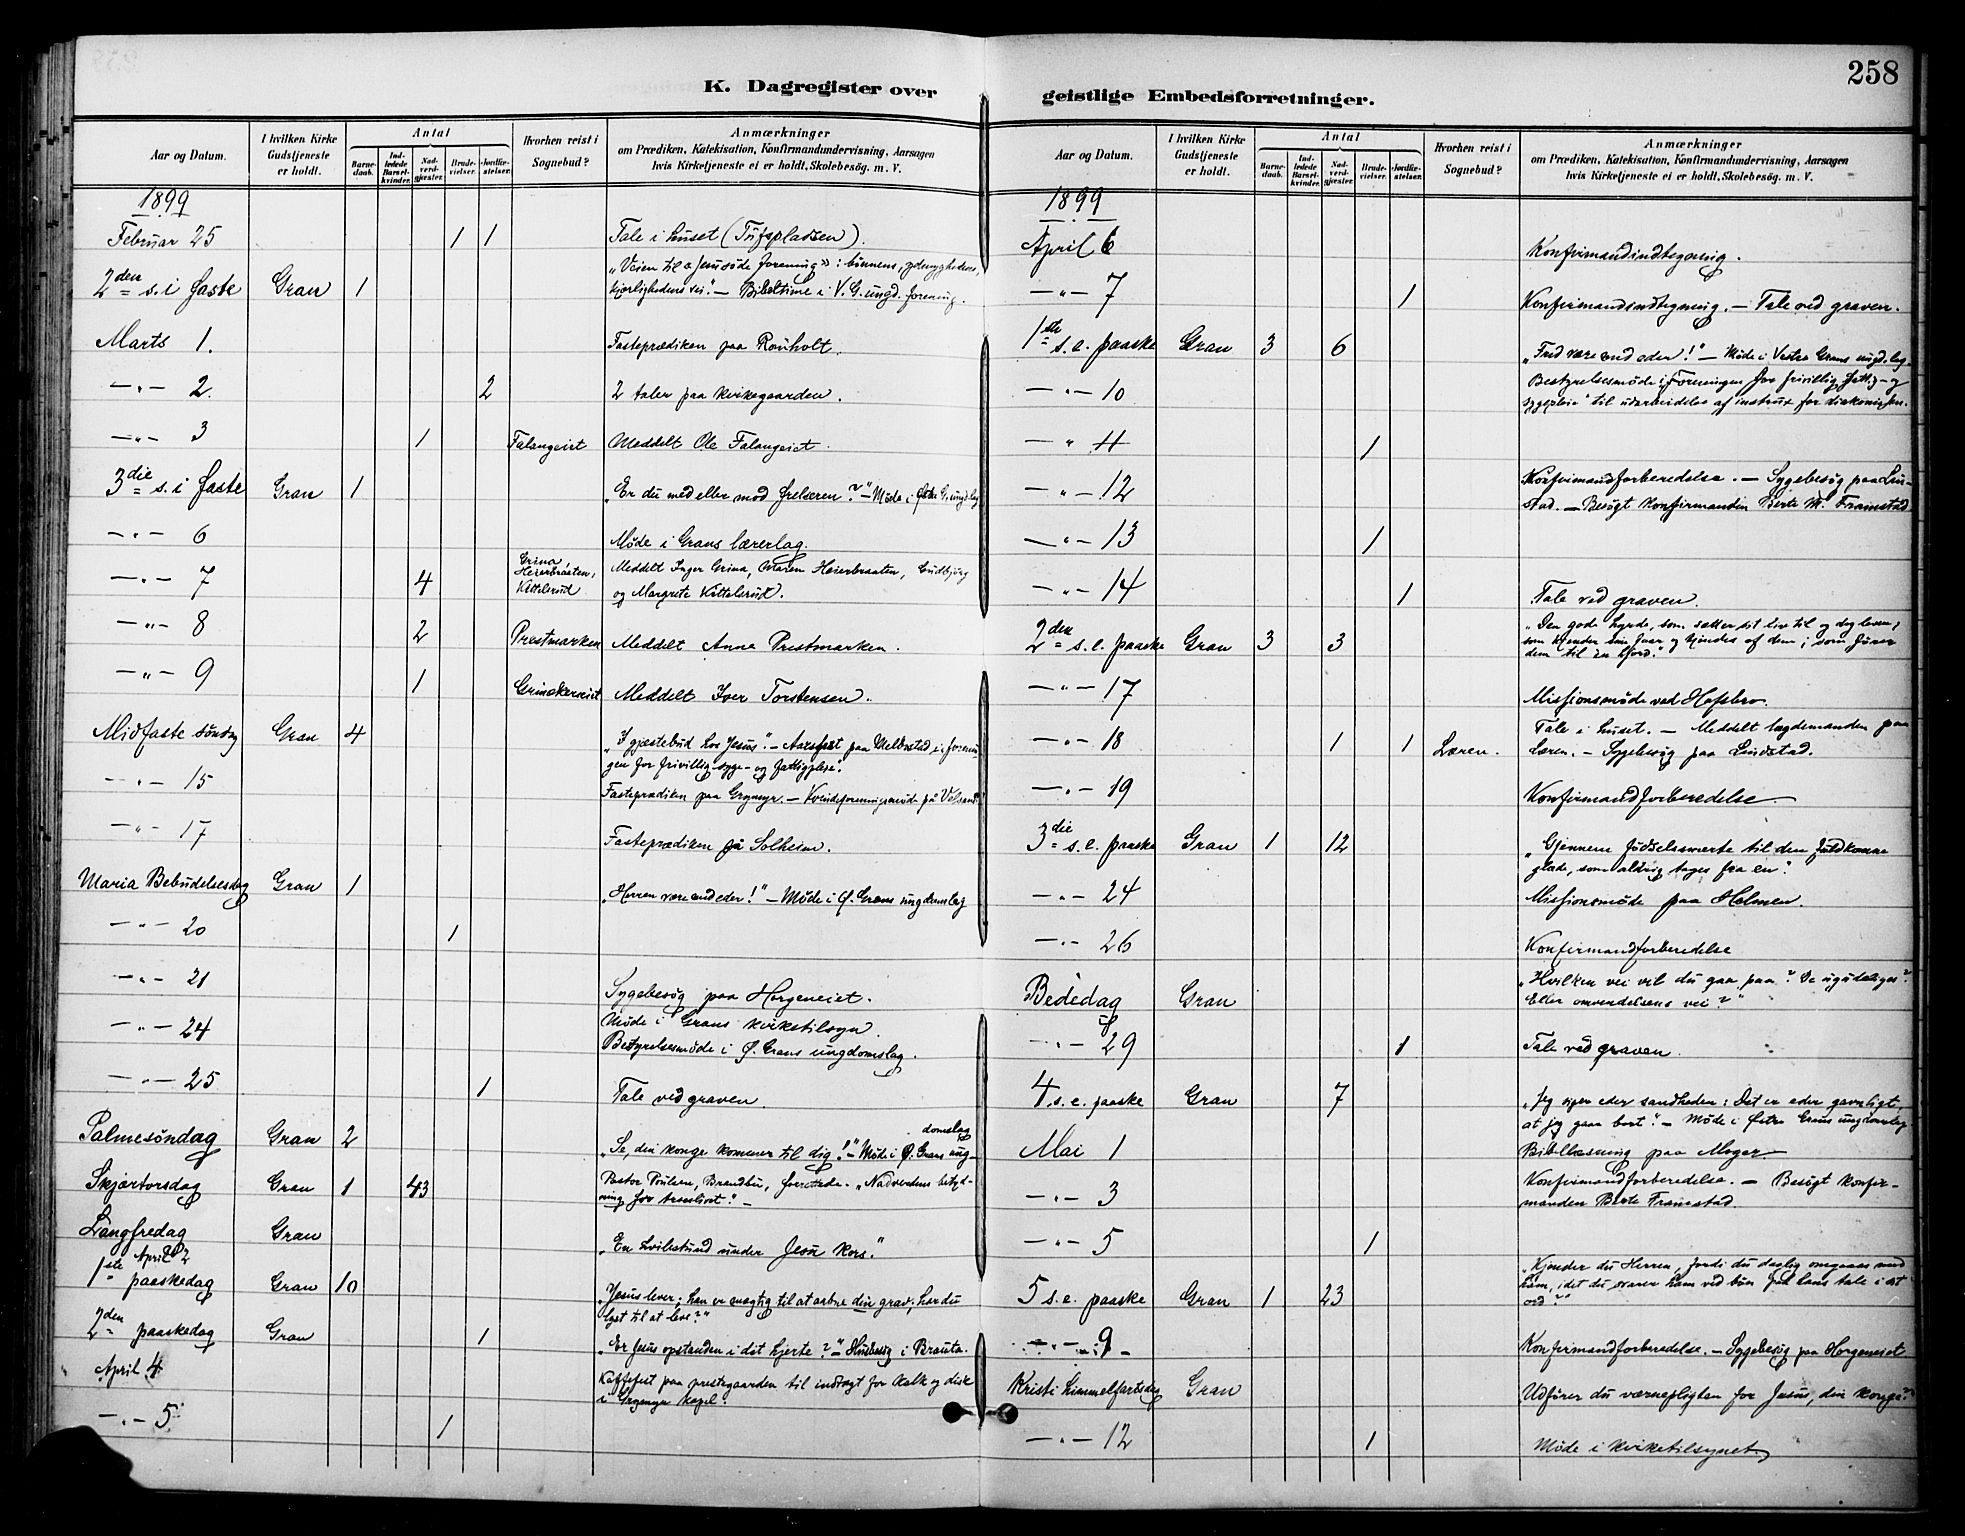 258
K. Dagregister over
geistlige Embedsforretninger.
Aar og Datum.
I hvilken Kirke Gudstjeneste er holdt.
Antal
Barnedaab.
Indledede Barselkvinder.
Nadverdgjæster.
Brudevielser.
Jordfæstelser.
Hvorhen reist i Sognebud?
Anmærkninger
om Prædiken, Katekisation, Konfirmandundervisning, Aarsagen
hvis Kirketjeneste ei er holdt, Skolebesøg. m. V.
1899
Februar 25 1 1 Tale i huset (Tufspladsen).
2den s. i faste Gran 1 "Veien til Jesu søde forening": bønnens, ydmyghedens,
kjærlighedens vei." — Bibeltime i V. G. ungd. forening.
Marts 1. Fasteprædiken paa Ronholt.
— " — 2. 2 2 taler paa kirkegaarden.
— " — 3 1 Falangeiet Meddelt Ole Falangeiet.
3die s. i faste Gran 1 "Er du med eller mod frelseren?" — Møde i Østre G. ungd.lag
— " — 6 Møde i Grans lærerlag.
— " — 7 4 Grina, Heierbraaten, Kittelsrud Meddelt Inger Grina, Maren Heierbraaten, Gudbjørg
og Margrete Kittelsrud.
— " — 8 2 Prestmarken Meddelt Anne Prestmarken.
— " — 9 1 Grinakereiet Meddelt Iver Torstensen.
Midfaste søndag Gran 4 "I gjestebud hos Jesus". — Aarsfest paa Melbostad i "forenin-
gen for frivillig syge- og fattigpleie".
— " — 15 Fasteprædiken paa Grymyr. — Kvindeforeningsmøde på
— " — 17 Fasteprædiken på Solheim.
Maria Bebudelsesdag Gran 1 "Herren være med eder!" — Møde i Ø. Grans ungdomslag
— " — 20 1
— " — 21 Sygebesøg paa Horgeneiet.
— " — 24 Møde i Grans kirketilsyn.
Bestyrelsesmøde i Ø. Grans ungdomslag.
— " — 25 1 Tale ved graven.
Palmesøndag Gran 2 "Se, din konge kommer til dig!" — Møde i Ø. Grans ung-
domslag
Skjærtorsdag Gran 1 43 Pastor Poulsen, Brandbu, forrettede. "Nadverdens betyd-
ning for troeslivet." —
Langfredag Gran "En hvilestund under Jesu kors."
April 2
1ste paaskedag Gran 10 "Jesus lever; han er mægtig til at aabne din grav; har du
lyst til at leve?"
2den paaskedag Gran 1 "Er Jesus opstanden i dit hjerte?" — Husbesøg i Brauta.
April 4 Kaffefest paa prestegaarden til indtægt for kalk og disk
i Grymyr kapel.
— " — 5 1
Aar og Datum.
I hvilken Kirke Gudstjeneste er holdt.
Antal
Barnedaab.
Indledede Barselkvinder.
Nadverdgjæster.
Brudevielser.
Jordfæstelser.
Hvorhen reist i Sognebud?
Anmærkninger
om Prædiken, Katekisation, Konfirmandundervisning, Aarsagen
hvis Kirketjeneste ei er holdt, Skolebesøg. m. V.
1899
April 6 Konfirmandindtegning.
— " — 7 1 Konfirmandindtegning. — Tale ved graven.
1ste s. e. paaske Gran 3 6 "Fred være med eder!" — Møde i Vestre Grans ungd.lag.
— " — 10 Bestyrelsesmøde i "Foreningen for frivillig fattig- og
sygepleie" til udarbeidelse af instrux for diakonissen.
— " — 11 1
— " — 12 Konfirmandforberedelse. — Sygebesøg paa Lin-
stad. — Besøgt konfirmanden Berte M. Framstad
— " — 13 1
— " — 14 1 Tale ved graven.
2den s. e. paaske Gran 3 3 "Den gode hyrde, som sætter sit liv til og dog lever;
som kjender sine faar og kjendes af dem; som fører
dem til én hjord."
— " — 17 Missionsmøde ved Hofsbro.
— " — 18 1 1 Læren. Tale i huset. — Meddelt lægdemanden paa
Læren. — Sygebesøg paa Lindstad.
— " — 19 Konfirmandforberedelse.
3die s. e. paaske Gran 1 12 "Gjennem fødselssmerte til den fuldkomne
glæde, som aldrig tages fra en."
— " — 24 Missionsmøde paa Helmen.
— " — 26 Konfirmandforberedelse
Bededag Gran "Hvilken vei vil du gaa paa? De ugudeliges?
Eller omvendelsens vei?"
— " — 29 1 Tale ved graven.
4. s. e. paaske Gran 7 "Jeg siger eder sandheden: Det er eder gavnligt,
at jeg gaar bort". — Møde i Østre Grans ungdomslag
Mai 1 Bibellæsning paa Moger.
— " — 3 Konfirmandforberedelse. — Besøgt konfir-
manden Berte Framstad.
— " — 5 1
5 s. e. paaske Gran 1 23 "Kjender du Herren, fordi du daglig omgaaes med
ham, idet du svarer ham ved bøn paa hans tale i sit
ord?"
— " — 9 Konfirmandforberedelse. — Sygebesøg paa Horgeneiet
Kristi himmelfartsdag Gran Udfører du værnepligten for Jesus, din konge?
— " — 12 1 Møde i kirketilsynet.